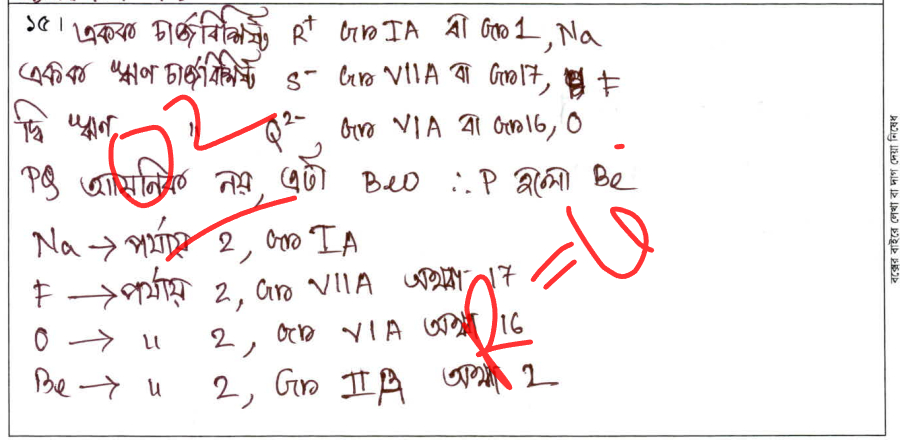 ১৫। একক চার্জবিশিষ্ট R⁺ Gr IA বা Gr 1, Na
একক ঋণ চার্জবিশিষ্ট S⁻ Gr VIIA বা Gr 17, F
দ্বি ঋণ " Q²⁻, Gr VIA বা Gr 16, O
PQ আয়নিক নয়, এটা BeO ∴ P হলো Be
Na → পর্যায় 2, Gr IA
F → পর্যায় 2, Gr VIIA অথবা 17
O → " 2, Gr VIA অথবা 16
Be → " 2, Gr IIA অথবা 2
বক্সের বাইরে লেখা বা দাগ দেয়া নিষেধ